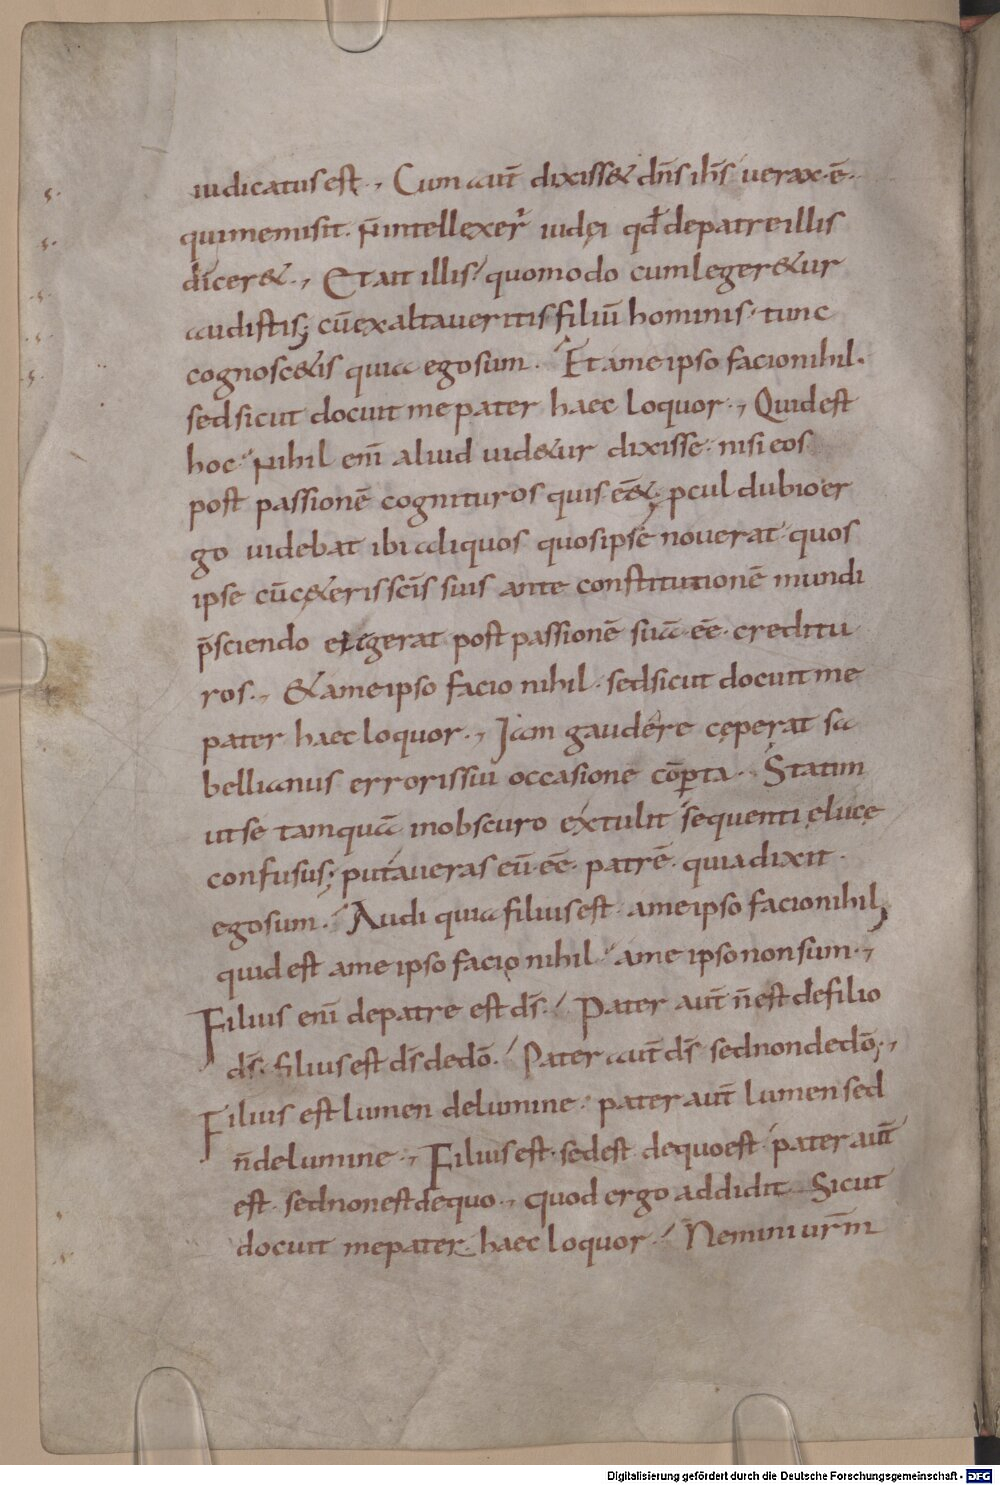 iudicatus est., Cum aut̄ dixiss& dn̄s ih̄s uerax·ē·
qui me misit. n̄ intellexer̄ iudęi qd̄ de patre illis
dicer&., Et ait illis/ quomodo cum leger&ur
audistis; cū exaltaueritis filiū hominis· tunc
cognosc&is quia ego sum. Et a me ipso facio nihil.
sed sicut docuit me pater haec loquor., Quid est
hoc· Nihil enī aliud uid&ur dixisse· nisi eos
post passionē cognituros quis·ēē&; ꝓcul dubio er
go uidebat ibi aliquos quos ipse nouerat· quos
ipse cū c&̨eris sc̄is suis ante constitutionē mundi
p̄sciendo elegerat post passionē suā·ēē· creditu
ros., & a me ipso facio nihil· sed sicut docuit me
pater haec loquor., Iam gaudere cęperat sa
bellianus erroris sui occasione cōperta· Statim
ut se tamquā in obscuro extulit sequenti ęluce
confusus; putaueras eū·ēē· patrē· quia dixit·
ego sum. Audi quia filius est· a me ipso facio nihil,
quid est a me ipso facio nihil· a me ipso non sum.,
Filius enī de patre est ds̄./ Pater aut̄ n̄ est de filio
ds̄· filius est ds̄ de dō./ Pater aut̄ ds̄ sed non de dō;,
Filius est lumen de lumine· pater aut̄ lumen sed
n̄ de lumine., Filius est· sed est de quo est· pater aut̄
est· sed non est de quo., quod ergo addidit· Sicut
docuit me pater· haec loquor./ Nemini ur̄m
Digitalisierung gefördert durch die Deutsche Forschungsgemeinschaft - DFG